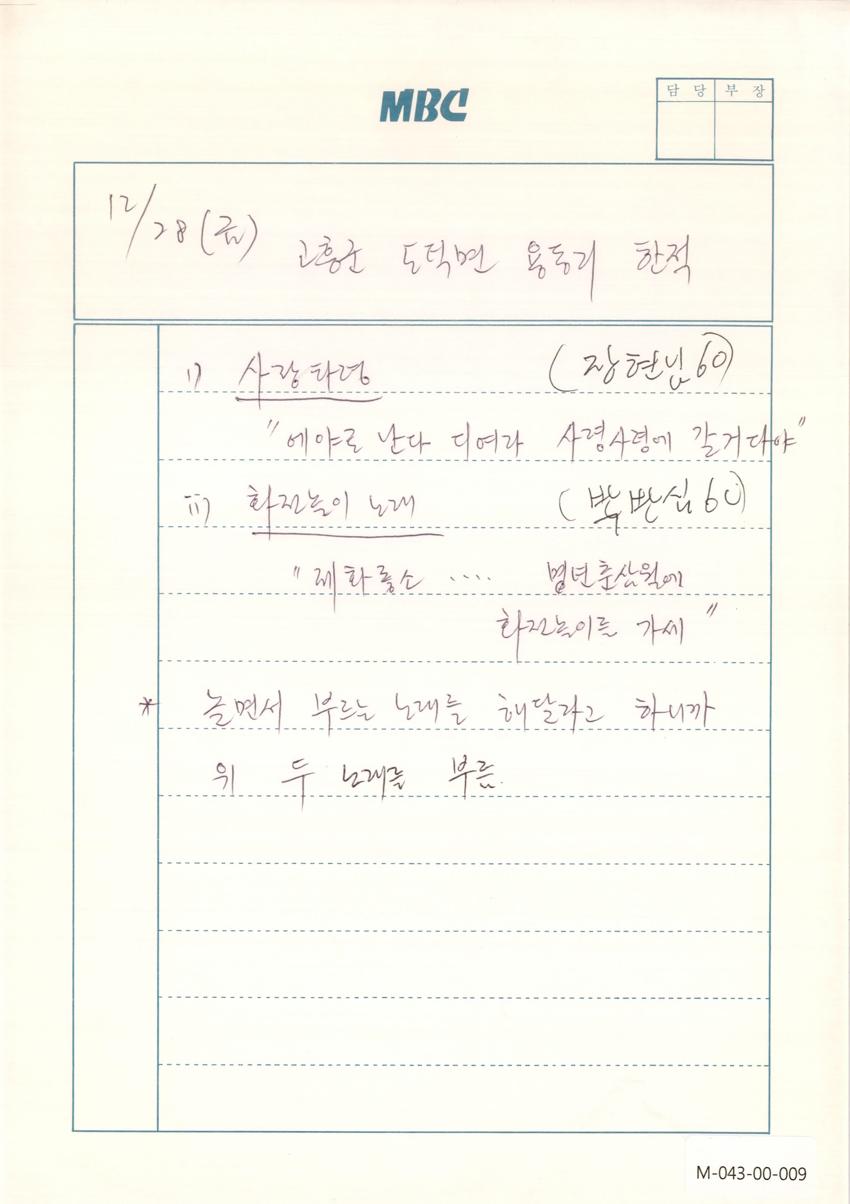 MBC
담 당 부 장
12/28(금) 고흥군 도덕면 용동리 한적
i) 사랑타령 (장현님 60)
"에야로 난다 디여라 사령사령에 갈거다야"
ii) 화전놀이 노래 (박반심 60)
"제화좋소 .... 명년춘삼월에
화전놀이를 가세"
* 놀면서 부르는 노래를 해달라고 하니까
위 두 노래를 부름.
M-043-00-009